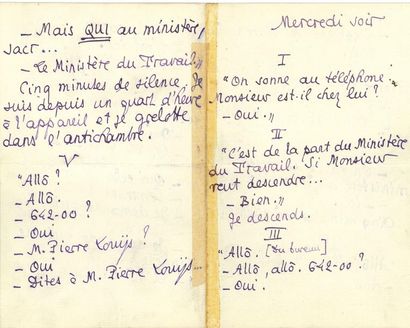 Mercredi soir
I
"On sonne au téléphone.
Monsieur est-il chez lui?
– Oui."
II
"C'est de la part du Ministère
du Travail. Si Monsieur
veut descendre...
– Bien."
Je descends.
III
"Allô. [Du bureau]
– Allô, allô. 642-00?
– Oui.
– Mais QUI au ministère,
sacr...
– Le Ministère du Travail."
Cinq minutes de silence. Je
suis depuis un quart d'heure
à l'appareil et je grelotte
dans l'antichambre.
V
"Allô?
– Allô.
– 642-00?
– Oui
– M. Pierre Louÿs?
– Oui
– Dites à M. Pierre Louÿs...